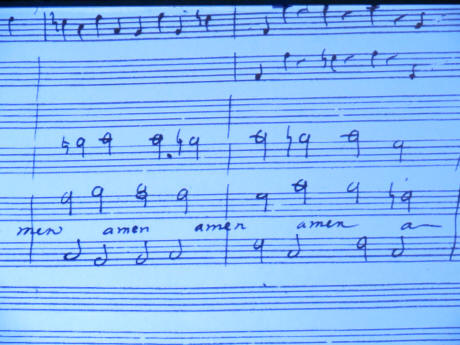 men amen amen amen a